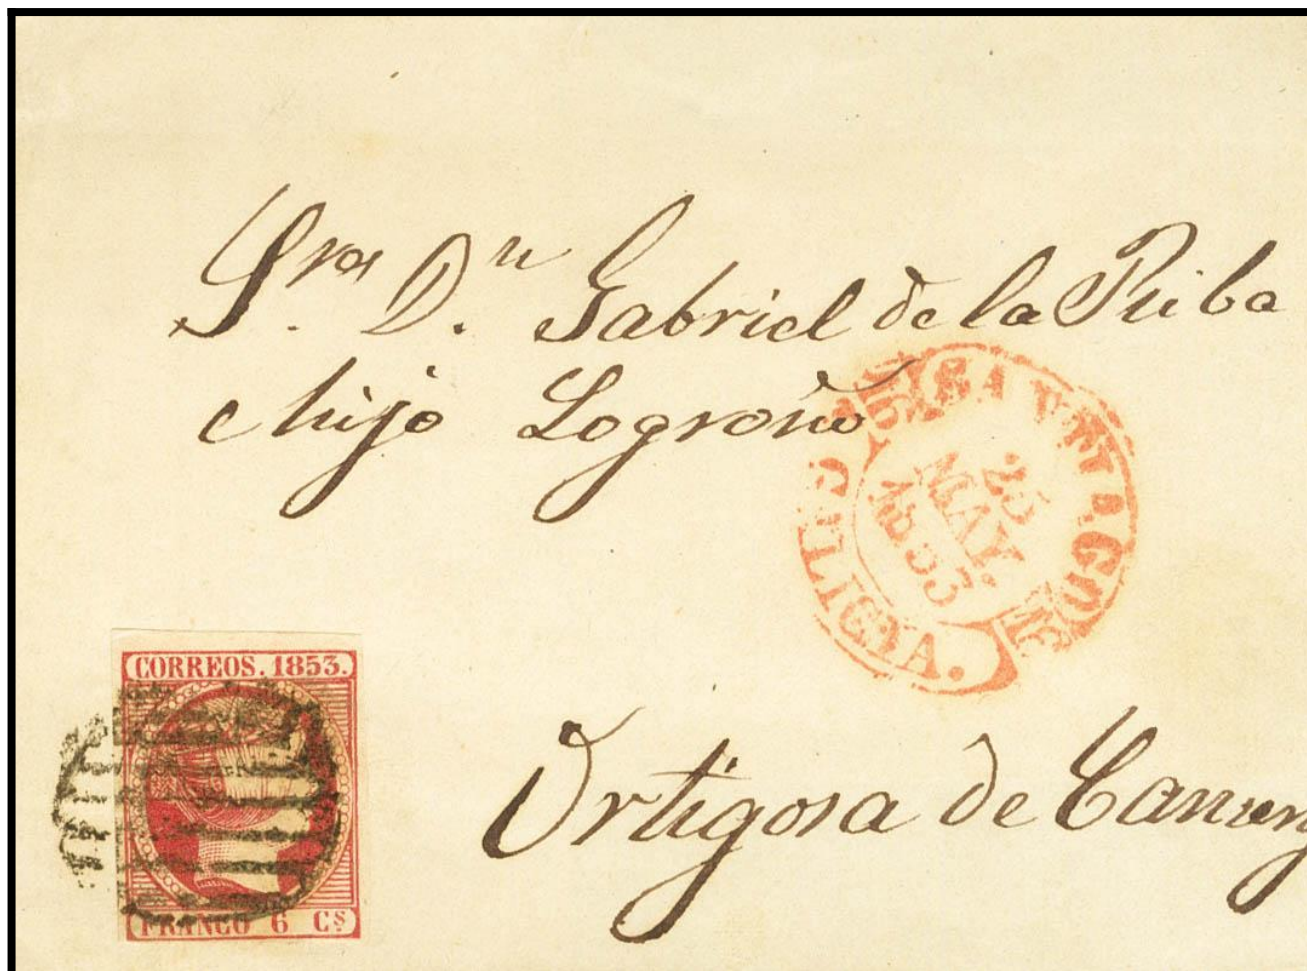 Sres Dn Gabriel de la Riba
e hijo Logroño
SANTIAGO
25
MAY.
1853
GALICIA.
CORREOS. 1853.
FRANCO 6 Cs
Ortigosa de